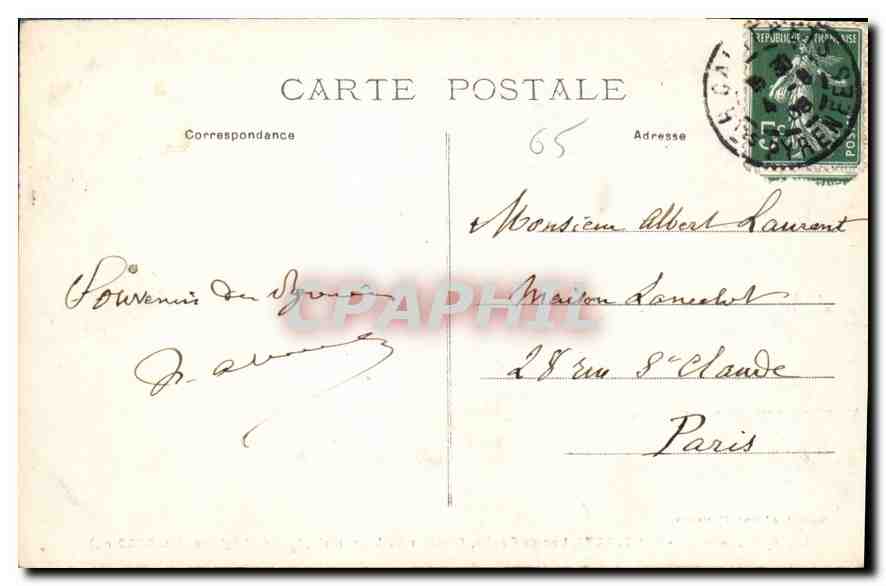 CARTE POSTALE
Correspondance
Adresse
65
REPUBLIQUE FRANÇAISE
POSTES
5c
PYRENEES
Monsieur Albert Laurent
Maison Lancelot
28 rue St Claude
Paris
Souvenir des
CPAPHIL